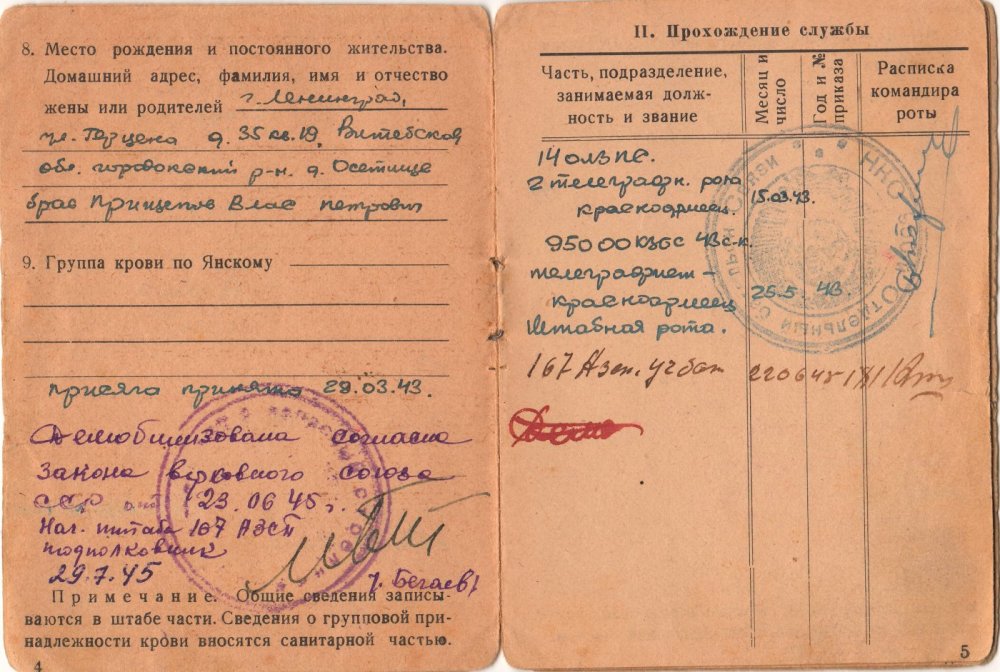 8. Место рождения и постоянного жительства.
Домашний адрес, фамилия, имя и отчество
жены или родителей г. Ленинград,
ул. Герцена д. 35 кв. 19. Витебская
обл. городокский р-н. д. Осетище
брат Прищепов Влас петрович
9. Группа крови по Янскому
присяга принята 29.03.43.
Демобилизована согласно
закона верховного союза
ССР от 23.06.45 г.
Нач. штаба 167 АЗСП
подполковник
29.7.45
/. Бегаев/
Примечание. Общие сведения записы-
ваются в штабе части. Сведения о групповой при-
надлежности крови вносятся санитарной частью.
4
II. Прохождение службы
Часть, подразделение, занимаемая долж-
ность и звание
Месяц и число
Год и № приказа
Расписка командира роты
14 олзпс.
2 телеграфн. рота
красноармеец. 15.03.43.
телеграфист-
красноармеец 25.5 43
Штабная рота.
167 Азсп. уч бат 220645 181
Демо
НКО
Отдельный
связи
5